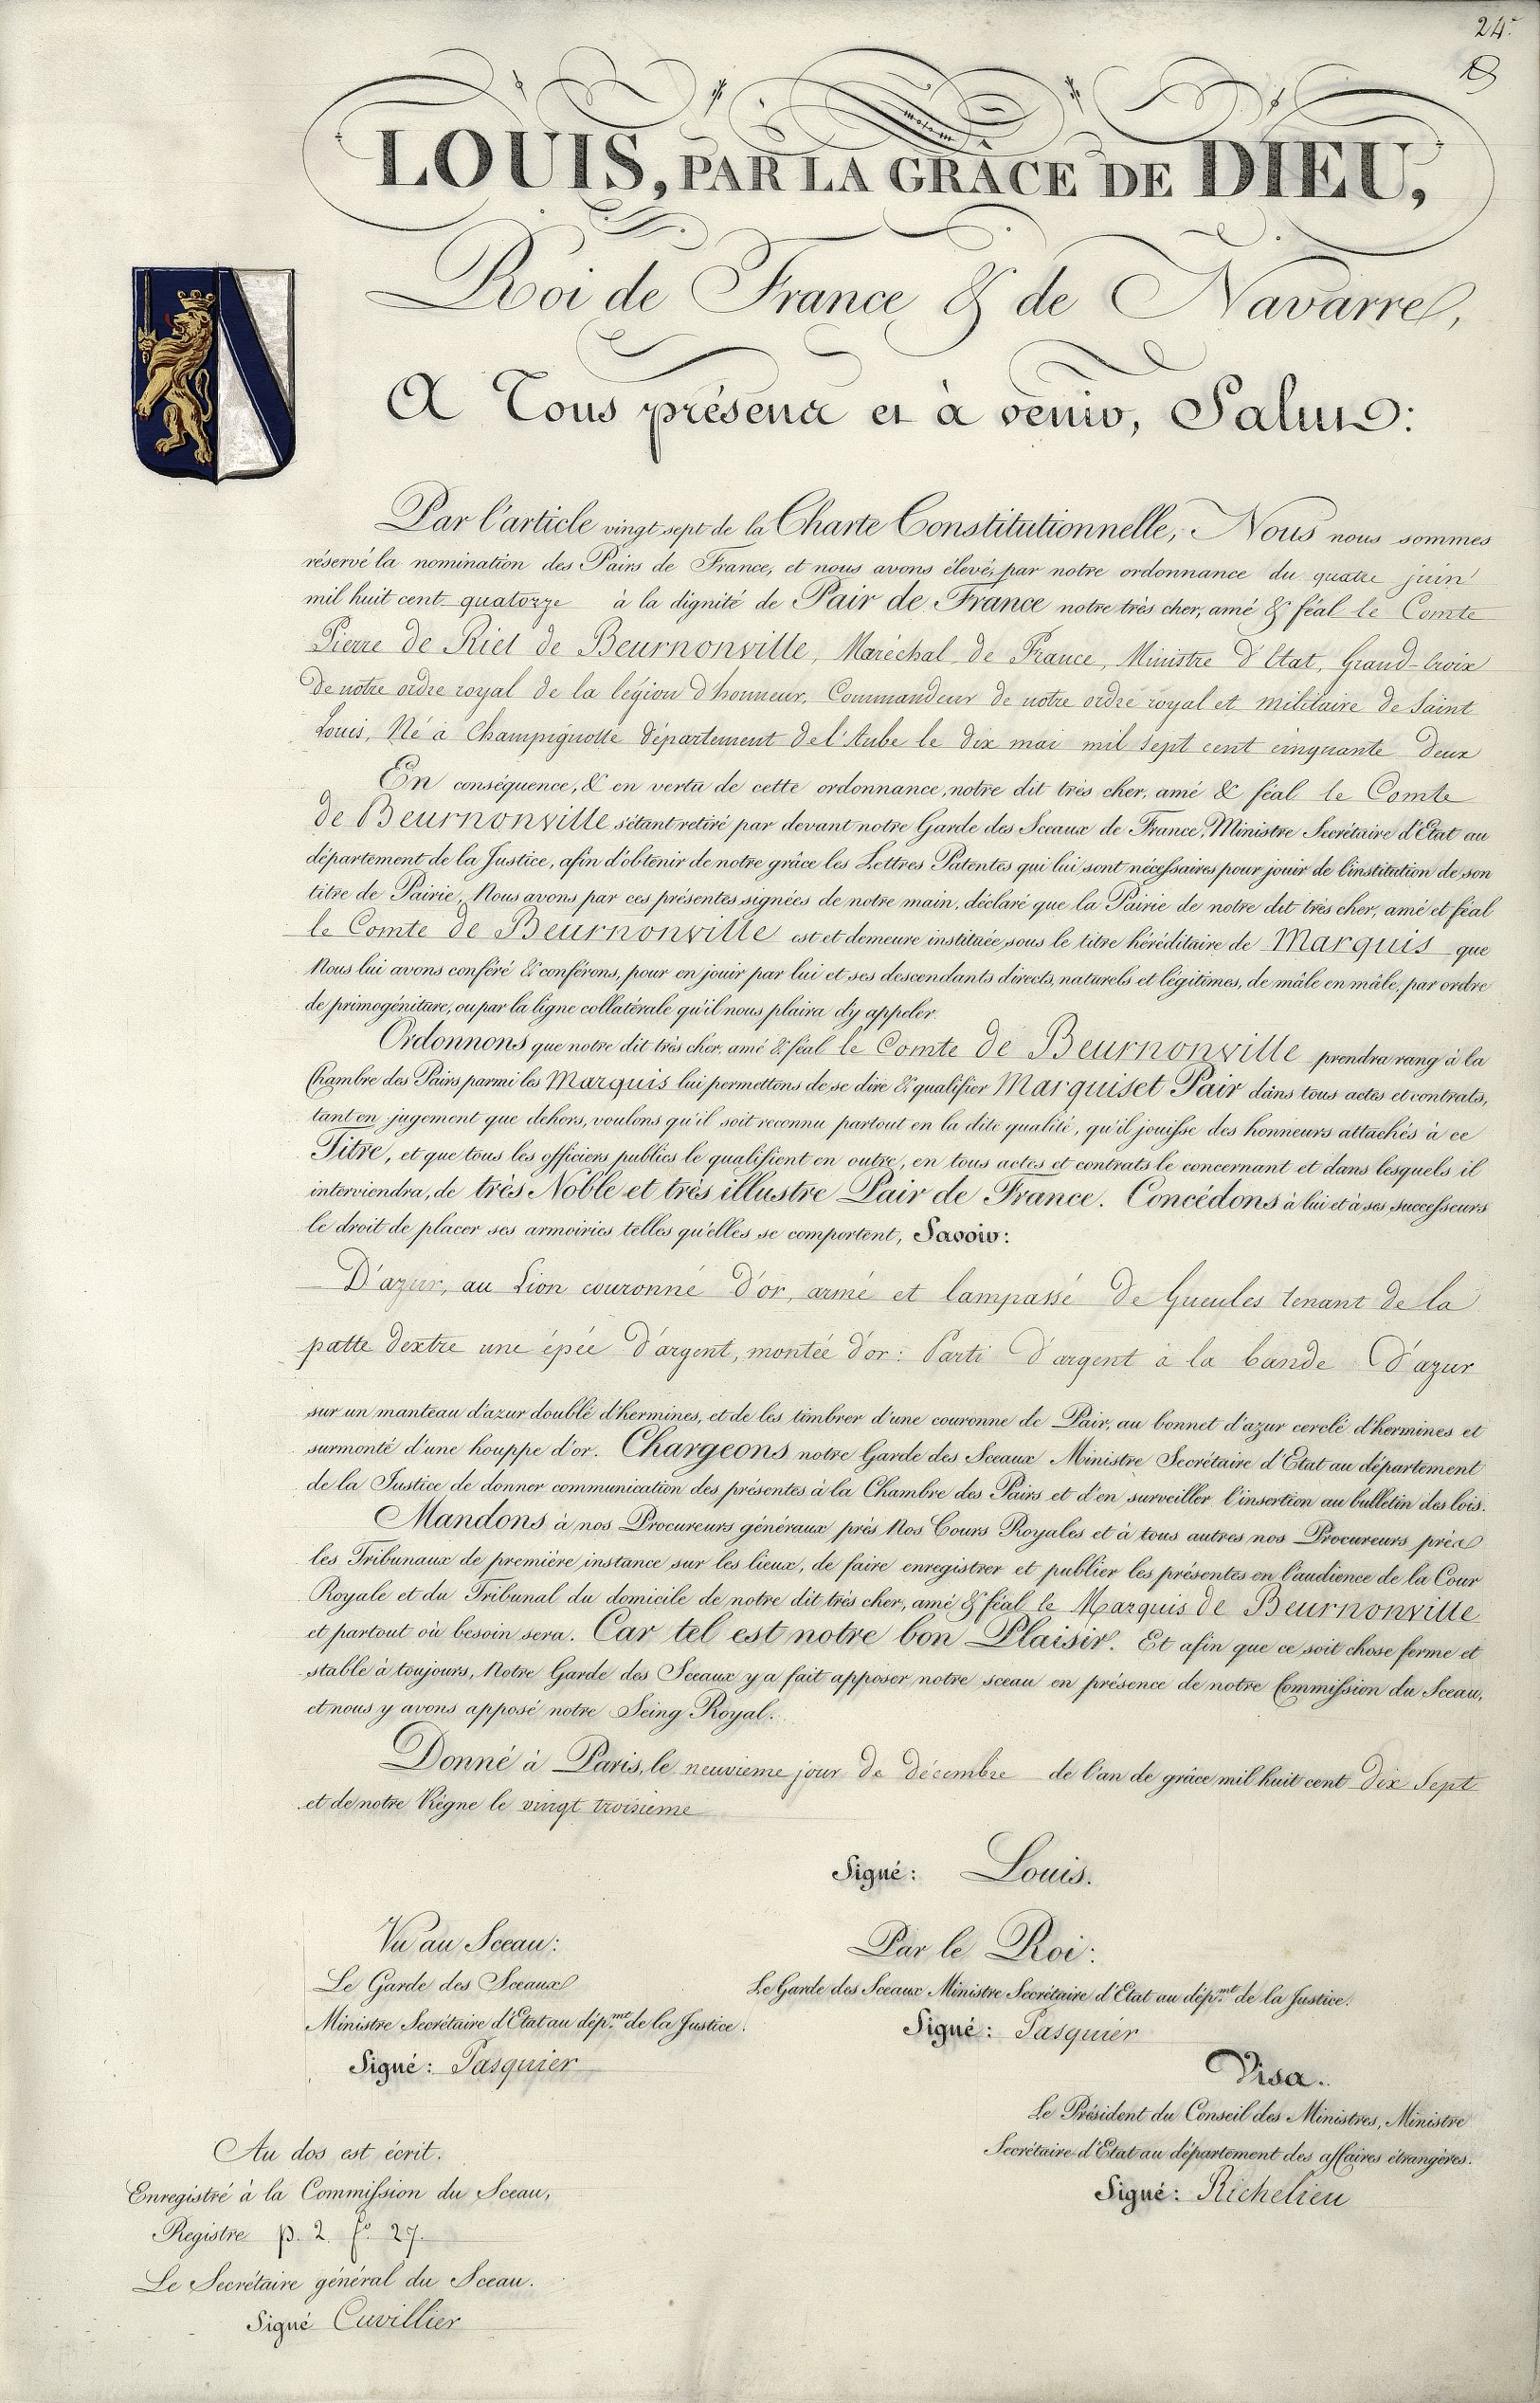 24.
LOUIS, PAR LA GRÂCE DE DIEU,
Roi de France & de Navarre,
A Tous présens et à venir, Salut:
Par l'article vingt sept de la Charte Constitutionnelle, Nous nous sommes
réservé la nomination des Pairs de France, et nous avons élevé, par notre ordonnance du quatre juin
mil huit cent quatorze à la dignité de Pair de France notre très cher, amé & féal le Comte
Pierre de Riel de Beurnonville, Maréchal de France, Ministre d'Etat, Grand-Croix
de notre ordre royal de la légion d'honneur, Commandeur de notre ordre royal et militaire de Saint
Louis, Né à Champignolle département de l'Aube le dix mai mil sept cent cinquante deux
En conséquence, & en vertu de cette ordonnance, notre dit très cher, amé & féal le Comte
de Beurnonville s'étant retiré par devant notre Garde des Sceaux de France, Ministre Secrétaire d'Etat au
département de la Justice, afin d'obtenir de notre grâce les Lettres Patentes qui lui sont nécessaires pour jouir de l'institution de son
titre de Pairie, Nous avons par ces présentes signées de notre main, déclaré que la Pairie de notre dit très cher, amé et féal
le Comte de Beurnonville est et demeure instituée sous le titre héréditaire de Marquis que
Nous lui avons conféré & conférons, pour en jouir par lui et ses descendants directs, naturels et légitimes, de mâle en mâle, par ordre
de primogéniture, ou par la ligne collatérale qu'il nous plaira d'y appeler.
Ordonnons que notre dit très cher, amé & féal le Comte de Beurnonville prendra rang à la
Chambre des Pairs parmi les Marquis lui permettons de se dire & qualifier Marquis et Pair dans tous actes et contrats,
tant en jugement que dehors, voulons qu'il soit reconnu partout en la dite qualité, qu'il jouisse des honneurs attachés à ce
Titre, et que tous les officiers publics le qualifient en outre, en tous actes et contrats le concernant et dans lesquels il
interviendra, de très Noble et très illustre Pair de France. Concédons à lui et à ses successeurs
le droit de placer ses armoiries telles qu'elles se comportent, Savoir:
D'azur, au Lion couronné d'or, armé et lampassé de Gueules tenant de la
patte dextre une épée d'argent, montée d'or: Parti d'argent à la bande d'azur
sur un manteau d'azur doublé d'hermines, et de les timbrer d'une couronne de Pair, au bonnet d'azur cerclé d'hermines et
surmonté d'une houppe d'or. Chargeons notre Garde des Sceaux Ministre Secrétaire d'Etat au département
de la Justice de donner communication des présentes à la Chambre des Pairs et d'en surveiller l'insertion au bulletin des lois.
Mandons à nos Procureurs généraux près Nos Cours Royales et à tous autres nos Procureurs près
les Tribunaux de première instance sur les lieux, de faire enregistrer et publier les présentes en l'audience de la Cour
Royale et du Tribunal du domicile de notre dit très cher, amé & féal le Marquis de Beurnonville
et partout où besoin sera. Car tel est notre bon Plaisir. Et afin que ce soit chose ferme et
stable à toujours, Notre Garde des Sceaux y a fait apposer notre sceau en présence de notre Commission du Sceau,
et nous y avons apposé notre Seing Royal.
Donné à Paris, le neuvieme jour de décembre de l'an de grâce mil huit cent dix sept
et de notre Règne le vingt troisieme
Signé: Louis.
Vu au Sceau:
Le Garde des Sceaux
Ministre Secrétaire d'Etat au dép.mt de la Justice.
Signé: Pasquier
Par le Roi:
Le Garde des Sceaux Ministre Secrétaire d'Etat au dép.mt de la Justice.
Signé: Pasquier
Visa.
Le Président du Conseil des Ministres, Ministre
Secrétaire d'Etat au département des affaires étrangères.
Signé: Richelieu
Au dos est écrit.
Enregistré à la Commission du Sceau,
Registre p. 2. fo. 27.
Le Secrétaire général du Sceau.
Signé Cuvillier